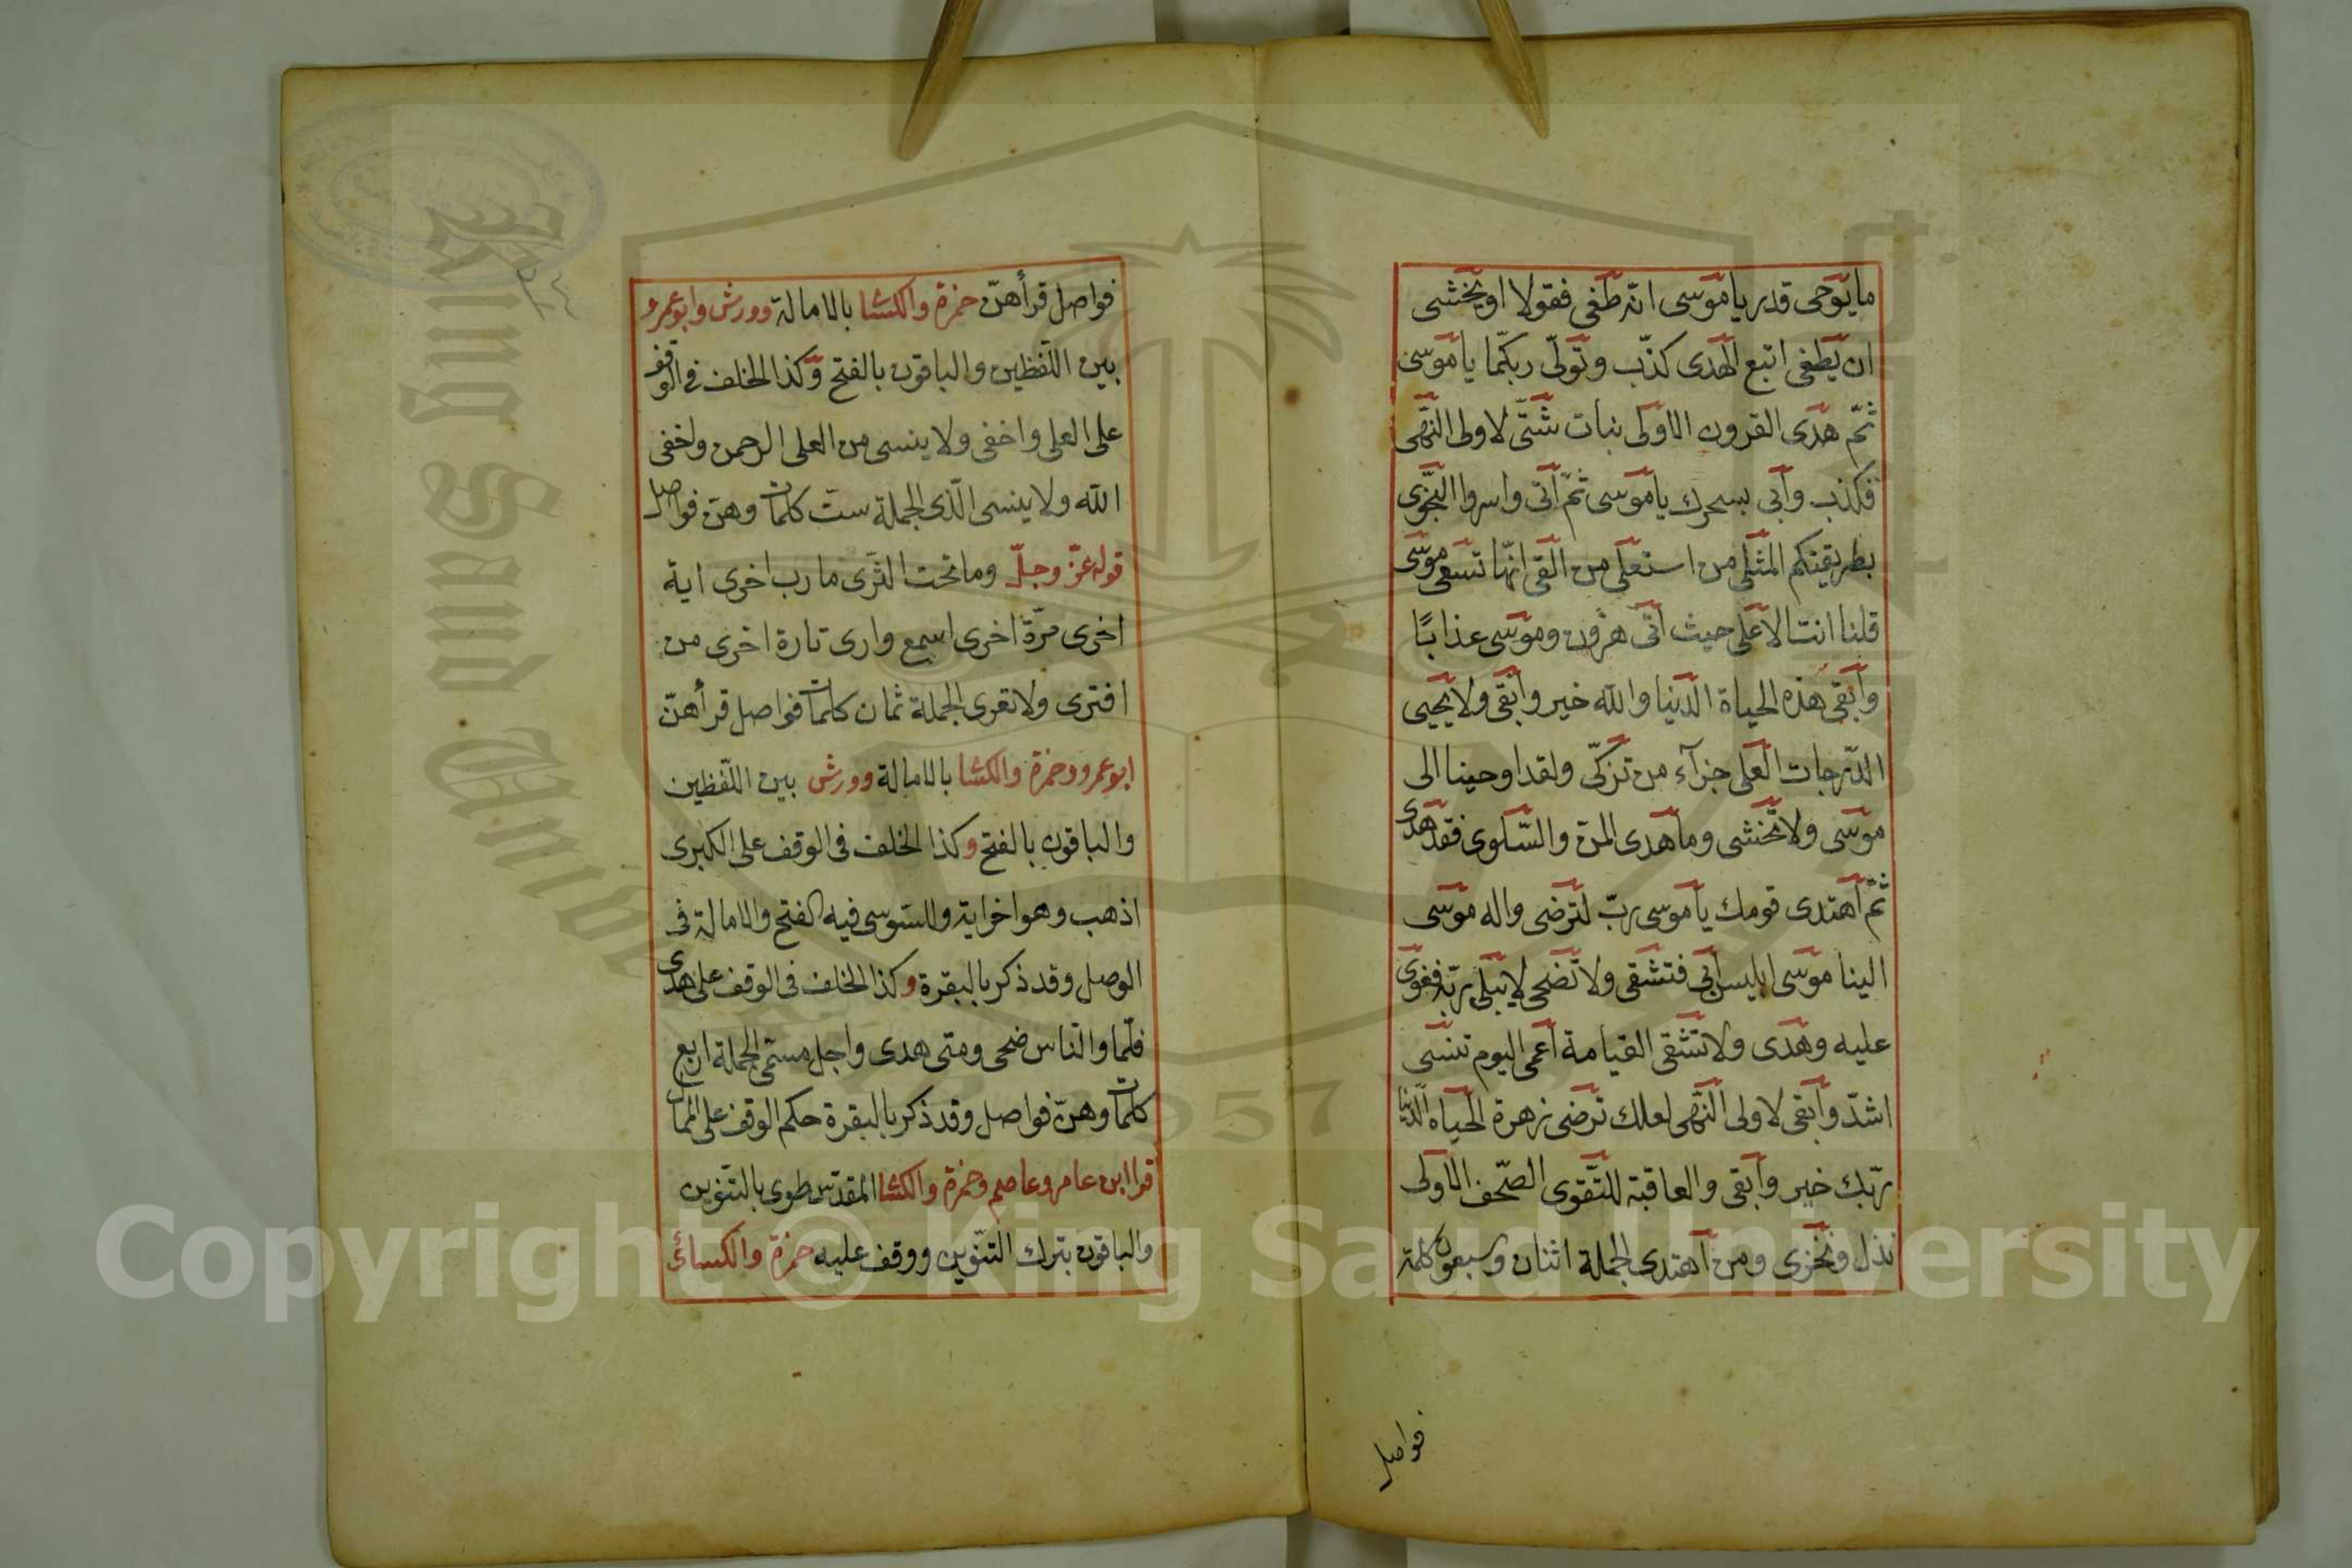 ما يوحى قدر يا موسى انه طغى فقولا او يخشى
ان يطغى اتبع الهدى كذّب وتولّى ربكما يا موسى
ثمّ هدى القرون الاولى نبات شتّى لاولى النّهى
فكذب وابى بسحرك يا موسى ثمّ اتى واسروا النّجوى
بطريقتكم المثلى من استعلى من القى انّها تسعى موسى
قلنا انت الاعلى حيث اتى هرون وموسى عذابًا
وابقى هذه الحياة الدّنيا والله خير وابقى ولا يحيى
الدّرجات العلى جزآء من تزكّى ولقد اوحينا الى
موسى ولا تخشى وما هدى المن والسّلوى فقد هدى
ثمّ اهتدى قومك يا موسى ربّ لترضى واله موسى
الينا موسى ابليس ابى فتشقى ولا تضحى لا يبلى ربّه فغوى
عليه وهدى ولا تشقى القيامة اعمى اليوم تنسى
اشدّ وابقى لاولى النّهى لعلك ترضى زهرة الحياه الدّنيا
ربّك خير وابقى والعاقبة للتّقوى الصّحف الاولى
نذل ونخزى ومن اهتدى الجملة اثنان وسبعون كلمة
فواصل
فواصل قرأهنّ حمزة والكسا بالامالة وورش وابو عمرو
بين اللّفظين والباقون بالفتح وكذا الخلف فى الوقف
على العلى واخفى ولا ينسى من العلى الرحمن واخفى
الله ولا ينسى الّذى الجملة ستّ كلمات وهنّ فواصل
قوله عزّ وجلّ وما تحت الثّرى مارب اخرى اية
اخرى مرّة اخرى اسمع وارى تارة اخرى من
افترى ولا تعرى الجملة ثمان كلمات فواصل قرأهنّ
ابو عمرو وحمزة والكسا بالامالة وورش بين اللّفظين
والباقون بالفتح وكذا الخلف فى الوقف على الكبرى
اذهب وهو اخر اية والسّوسى فيه الفتح والامالة فى
الوصل وقد ذكر بالبقرة وكذا الخلف فى الوقف على هدى
فلمّا والنّاس ضحى ومتى هدى واجل مسمّى الجملة اربع
كلمات وهنّ فواصل وقد ذكر بالبقرة حكم الوقف على الممال
قرا ابن عامر وعاصم وحمزة والكسا المقدّس طوى بالتنوين
والباقون بترك التنّوين ووقف عليه حمزة والكسائى
Copyright © King Saud University
King Saud University
1957